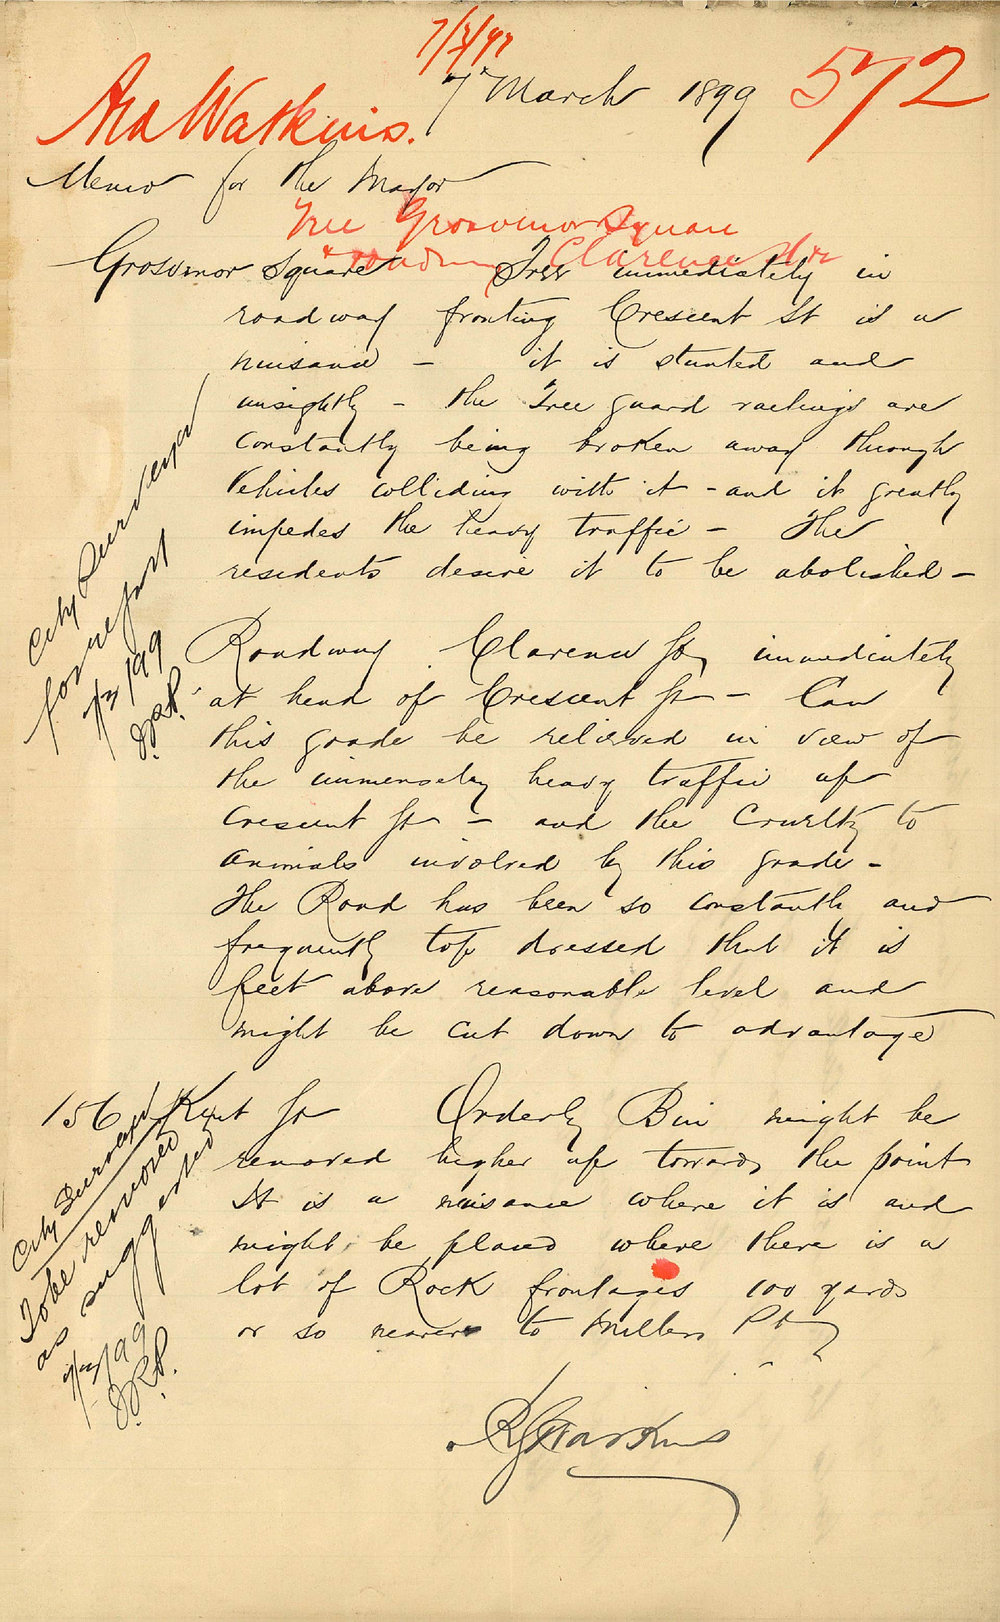 7/3/99
7th March 1899
572
Ald Watkins.
Memo for the Mayor
Tree Grosvenor Square
Clarence St
Grosvenor Square Tree immediately in
roadway fronting Crescent St is a
nuisance - it is stunted and
unsightly - the Tree guard railings are
constantly being broken away through
Vehicles colliding with it - and it greatly
impedes the heavy traffic - The
residents desire it to be abolished -
City Surveyor
for report
7/3/99
Roadway Clarence St, immediately
at head of Crescent St - Can
this grade be relieved in view of
the immensely heavy traffic up
Crescent St - and the Cruelty to
animals involved by this grade -
The Road has been so constantly and
frequently top dressed that it is
feet above reasonable level and
might be cut down to advantage
156 Kent St Orderly Bin might be
removed higher up towards the point
It is a nuisance where it is and
might be placed where there is a
lot of Rock frontages 100 yards
or so nearer to Millers Pt
City Surveyor
To be removed
as suggested
7/3/99
Watkins